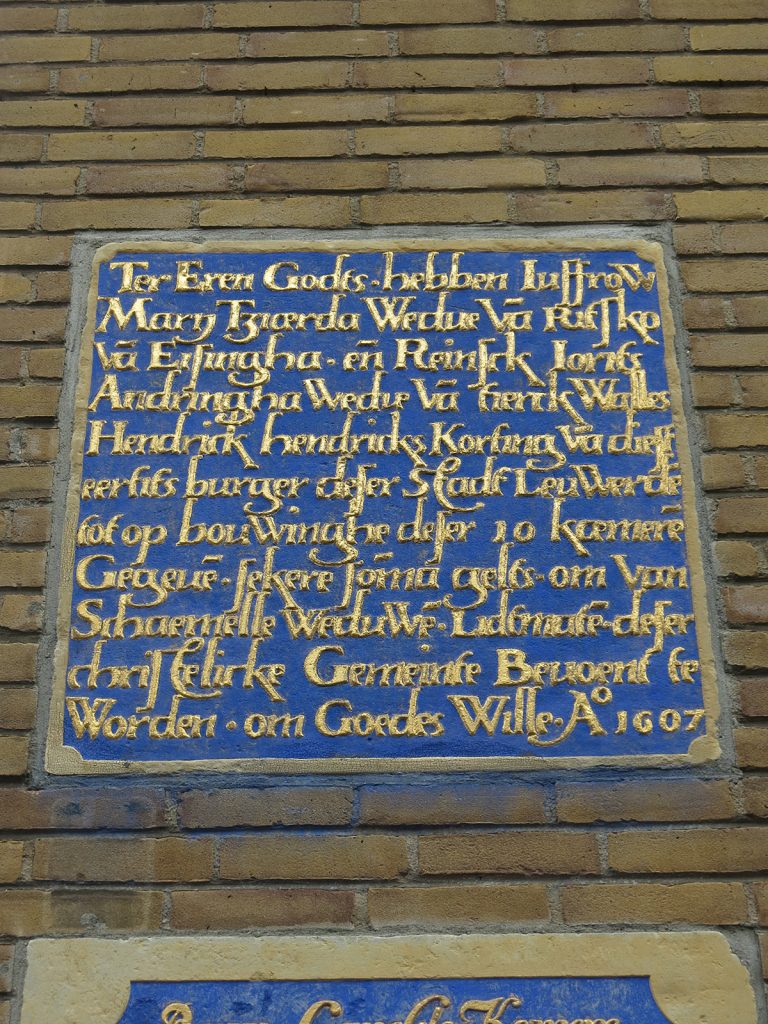 Ter Eren Godts hebben Iuffrow
Marij Tziærda Wedue Vā Ritsko
Vā Eisingha · eñ Reinsck Iorits
Andringha Wedue Vā tierck Walles
Hendrick hendricks Korting Vā dieft
eertits burger deser Stadt LeuWerdē
tot op bouWinghe deser 10 kæmerē
Gegeuē · sekere somā gelts · om Van
Schaemelle WeduWē · Lidtmate · deser
christelicke Gemeinte Beuoent te
Worden · om Goedes Wille · Aº 1607